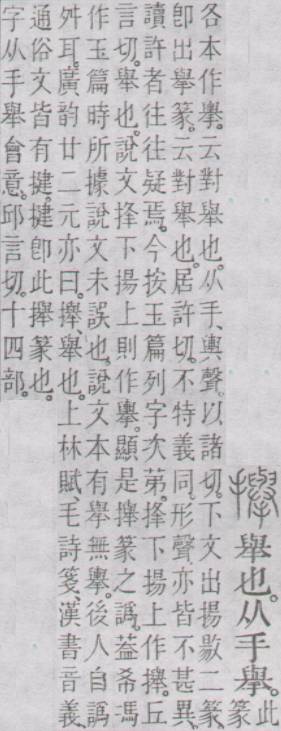 攑 舉也。从手舉。此篆
各本作擧。云對舉也。从手、輿聲。以諸切。下文出揚㪟二篆、
卽出擧篆。云對舉也。居許切。不特義同、形聲亦皆不甚異。
讀許者往往疑焉。今按玉篇列字次第。捀下揚上作攑。丘
言切。舉也。說文捀下揚上則作擧。顯是攑篆之譌。葢希馮
作玉篇時所據說文未誤也。說文本有攑無擧。後人自譌
舛耳。廣韵廿二元亦曰。攑、舉也。上林賦、毛詩箋、漢書音義、
通俗文皆有揵。揵卽此攑篆也。
字从手舉會意。邱言切。十四部。